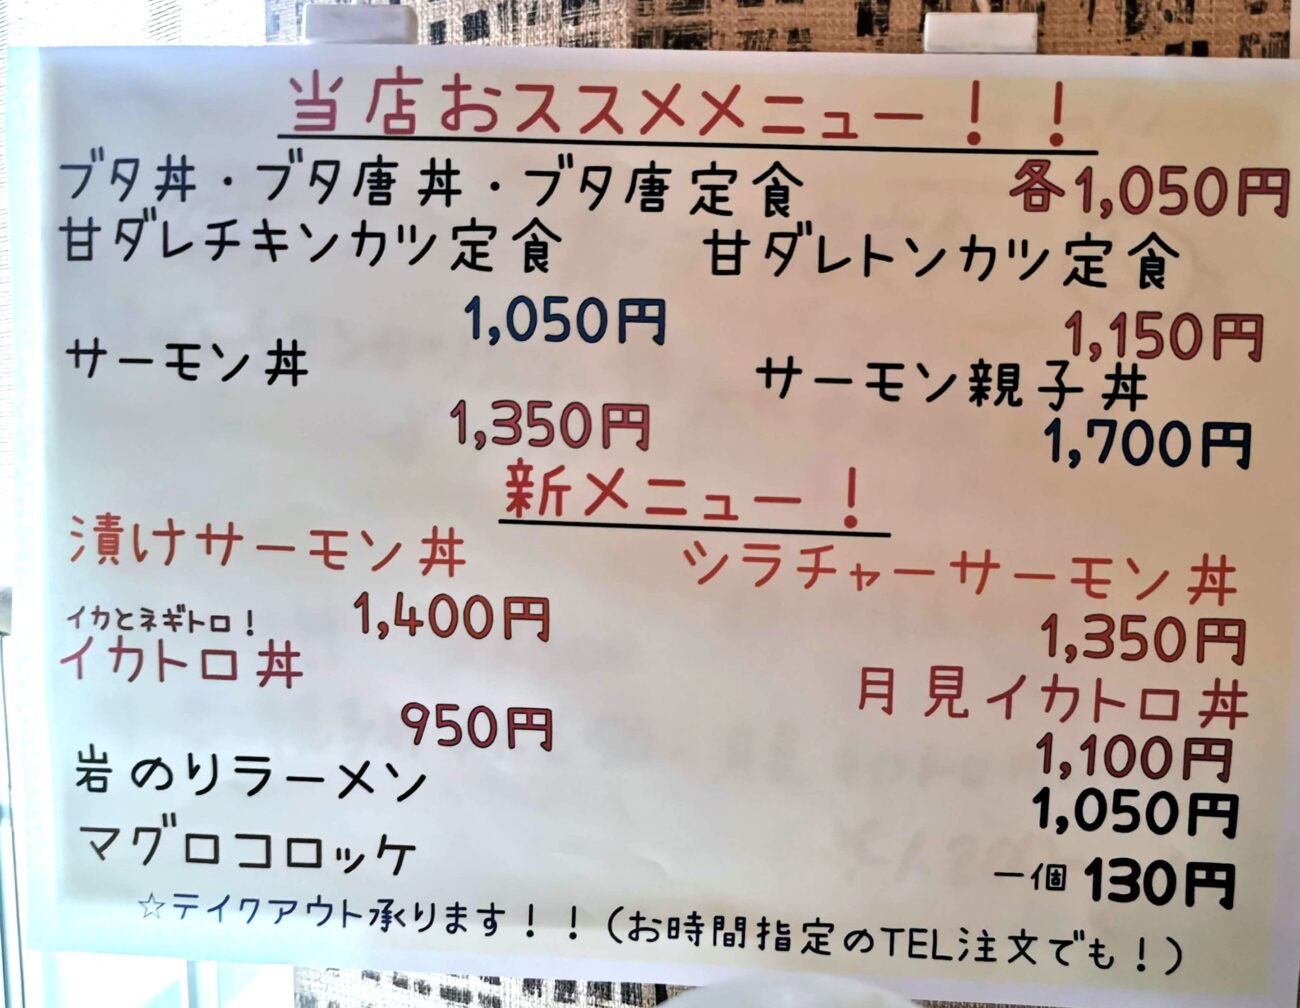 当店おススメメニュー！！
ブタ丼・ブタ唐丼・ブタ唐定食 各1,050円
甘ダレチキンカツ定食 甘ダレトンカツ定食
1,050円 1,150円
サーモン丼 サーモン親子丼
1,350円 1,700円
新メニュー！
漬けサーモン丼 シラチャーサーモン丼
1,400円 1,350円
イカとネギトロ！
イカトロ丼 月見イカトロ丼
950円 1,100円
岩のりラーメン 1,050円
マグロコロッケ 一個 130円
☆テイクアウト承ります！！（お時間指定のTEL注文でも！）